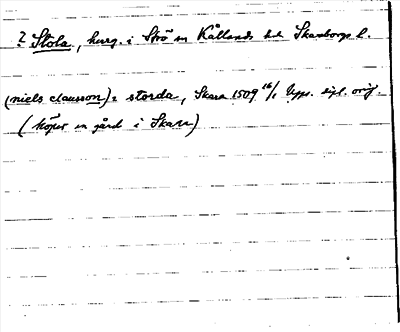 ? Stola, herrg. i Strö sn Kållands hd Skaraborgs l.
(niels clausson) i storda, Skara 1509 16/1 Upps. eftl. orig.
(köper en gård i Skara)